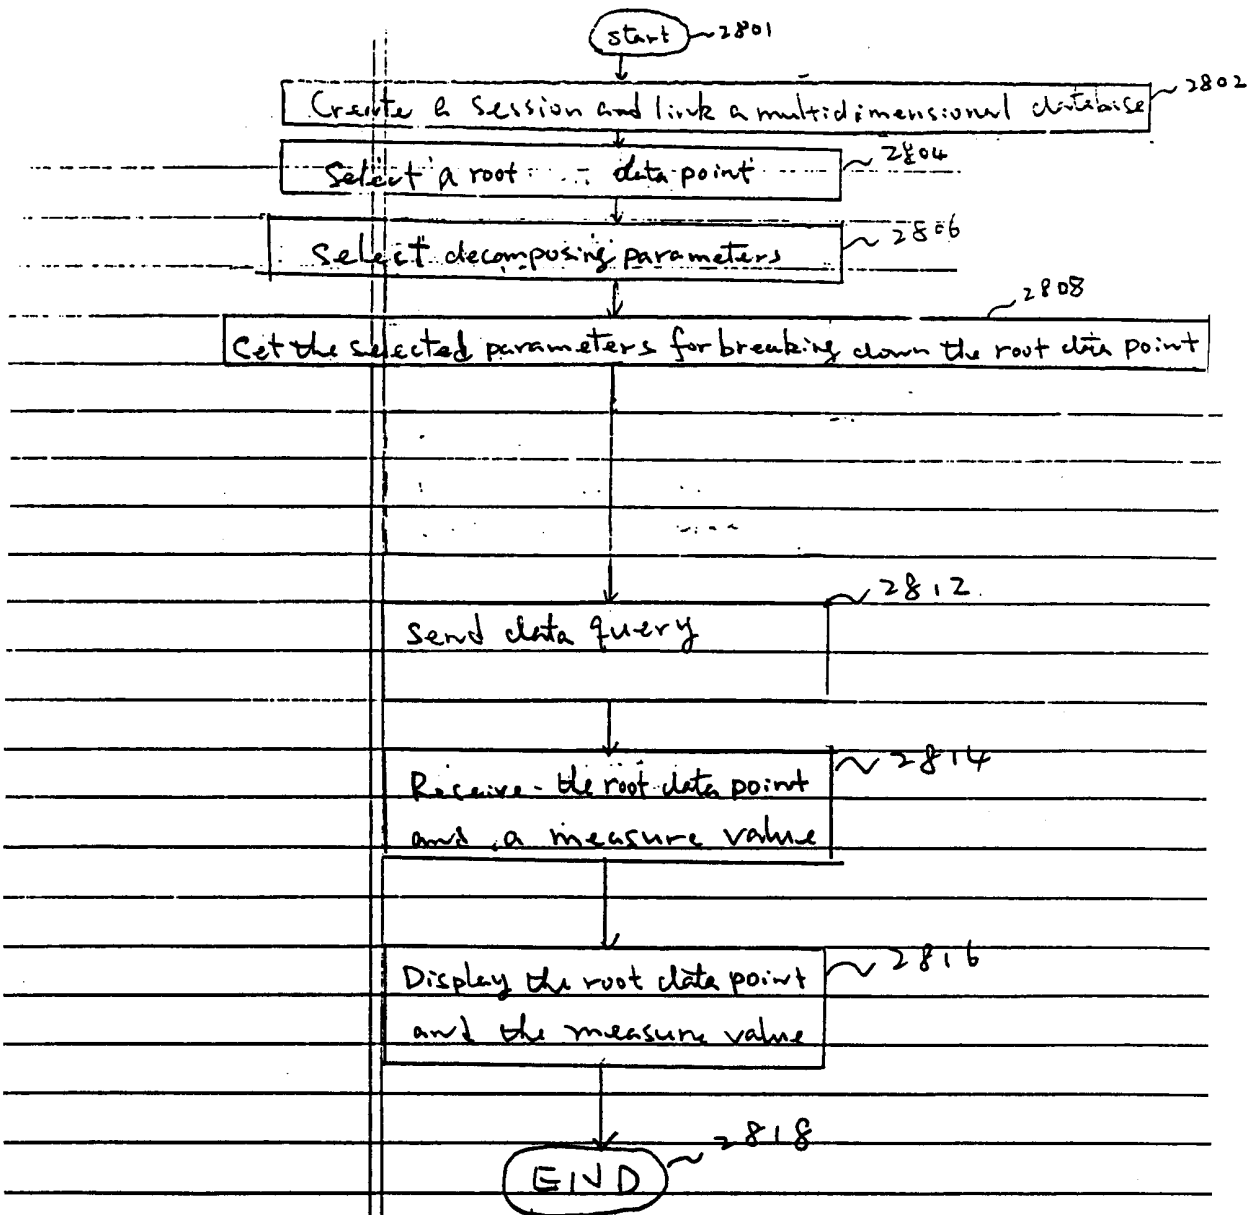 start 2801
Create a session and link a multidimensional database 2802
Select a root data point 2804
Select decomposing parameters 2806
2808
Get the selected parameters for breaking down the root data point
2812
Send data query
2814
Receive the root data point
and a measure value
2816
Display the root data point
and the measure value
2818
END